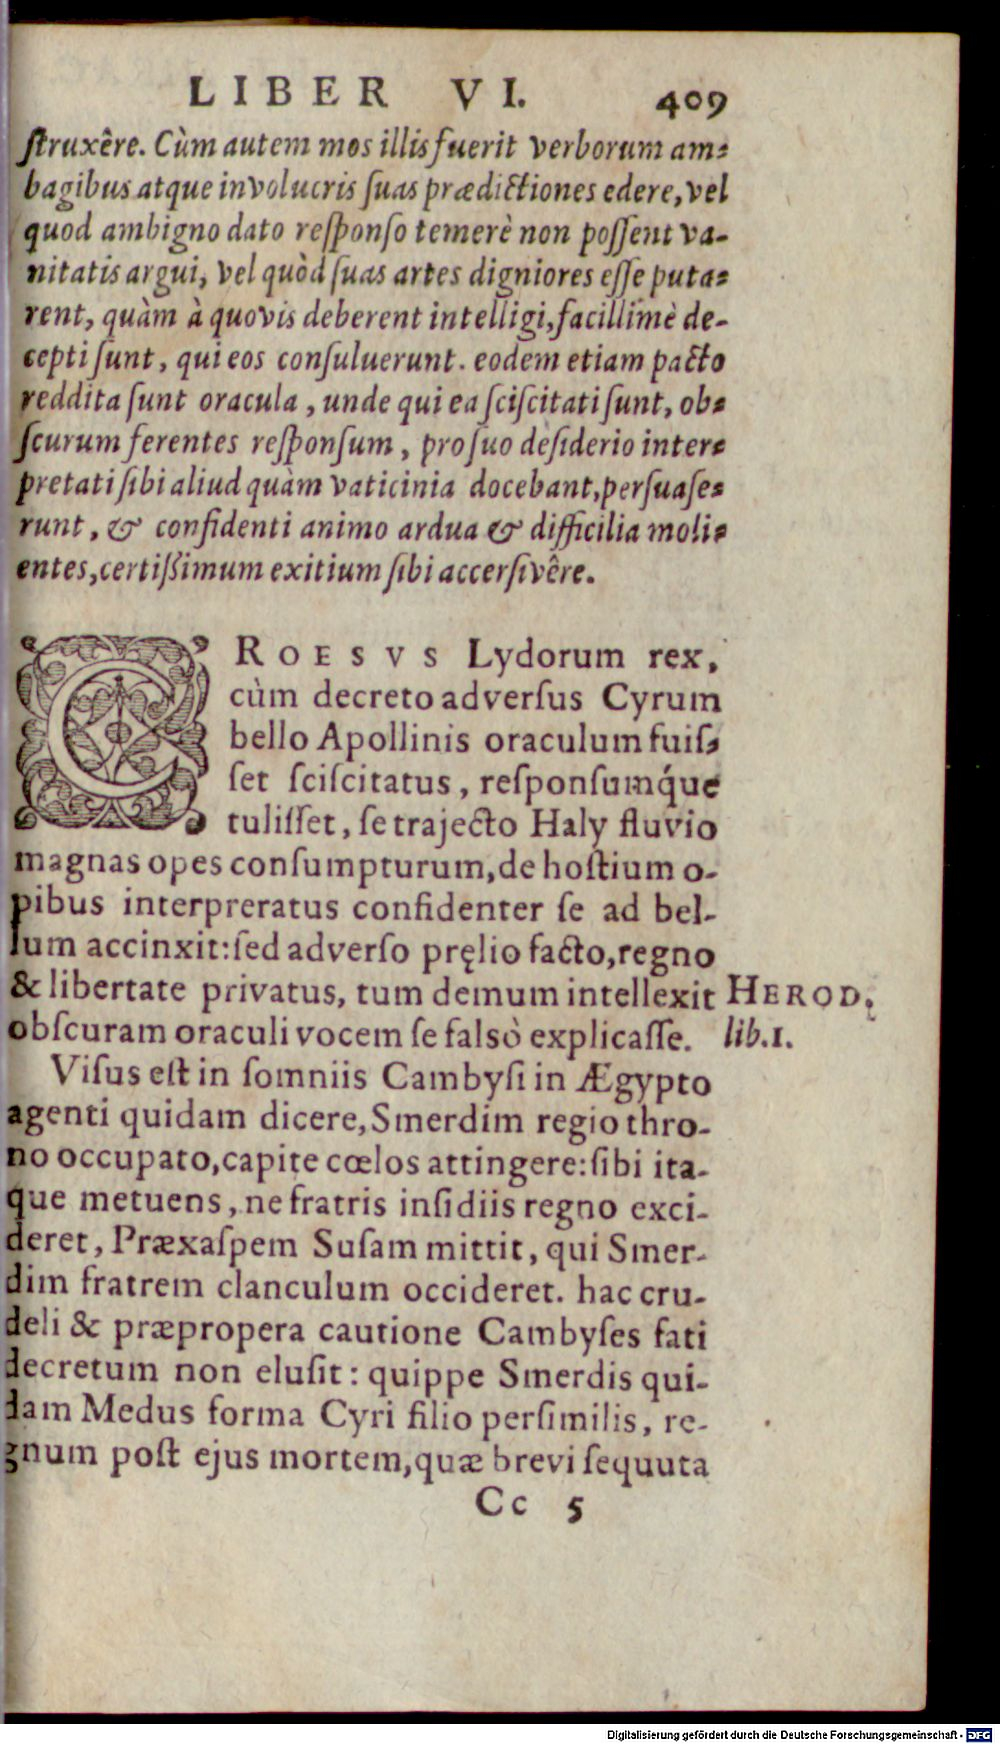 LIBER VI. 409
ſtruxêre. Cùm autem mos illis fuerit verborum am-
bagibus atque involucris ſuas prædictiones edere, vel
quod ambigno dato reſponſo temerè non poſſent va-
nitatis argui, vel quòd ſuas artes digniores eſſe puta-
rent, quàm à quovis deberent intelligi, facillimè de-
cepti ſunt, qui eos conſuluerunt. eodem etiam pacto
reddita ſunt oracula, unde qui ea ſciſcitati ſunt, ob-
ſcurum ferentes reſponſum, pro ſuo deſiderio inter-
pretati ſibi aliud quàm vaticinia docebant, perſuaſe-
runt, & confidenti animo ardua & difficilia moli-
entes, certiſſimum exitium ſibi accerſivêre.
CROESVS Lydorum rex,
cùm decreto adverſus Cyrum
bello Apollinis oraculum fuiſ-
ſet ſciſcitatus, reſponſumq́ue
tuliſſet, ſe trajecto Haly fluvio
magnas opes conſumpturum, de hoſtium o-
pibus interpreratus confidenter ſe ad bel-
lum accinxit: ſed adverſo pręlio facto, regno
& libertate privatus, tum demum intellexit HEROD.
obſcuram oraculi vocem ſe falsò explicaſſe. lib.1.
Viſus eſt in ſomniis Cambyſi in Ægypto
agenti quidam dicere, Smerdim regio thro-
no occupato, capite cœlos attingere: ſibi ita-
que metuens, ne fratris inſidiis regno exci-
deret, Præxaſpem Suſam mittit, qui Smer-
dim fratrem clanculum occideret. hac cru-
deli & præpropera cautione Cambyſes fati
decretum non eluſit: quippe Smerdis qui-
dam Medus forma Cyri filio perſimilis, re-
gnum poſt ejus mortem, quæ brevi ſequuta
Cc 5
Digitalisierung gefördert durch die Deutsche Forschungsgemeinschaft - DFG